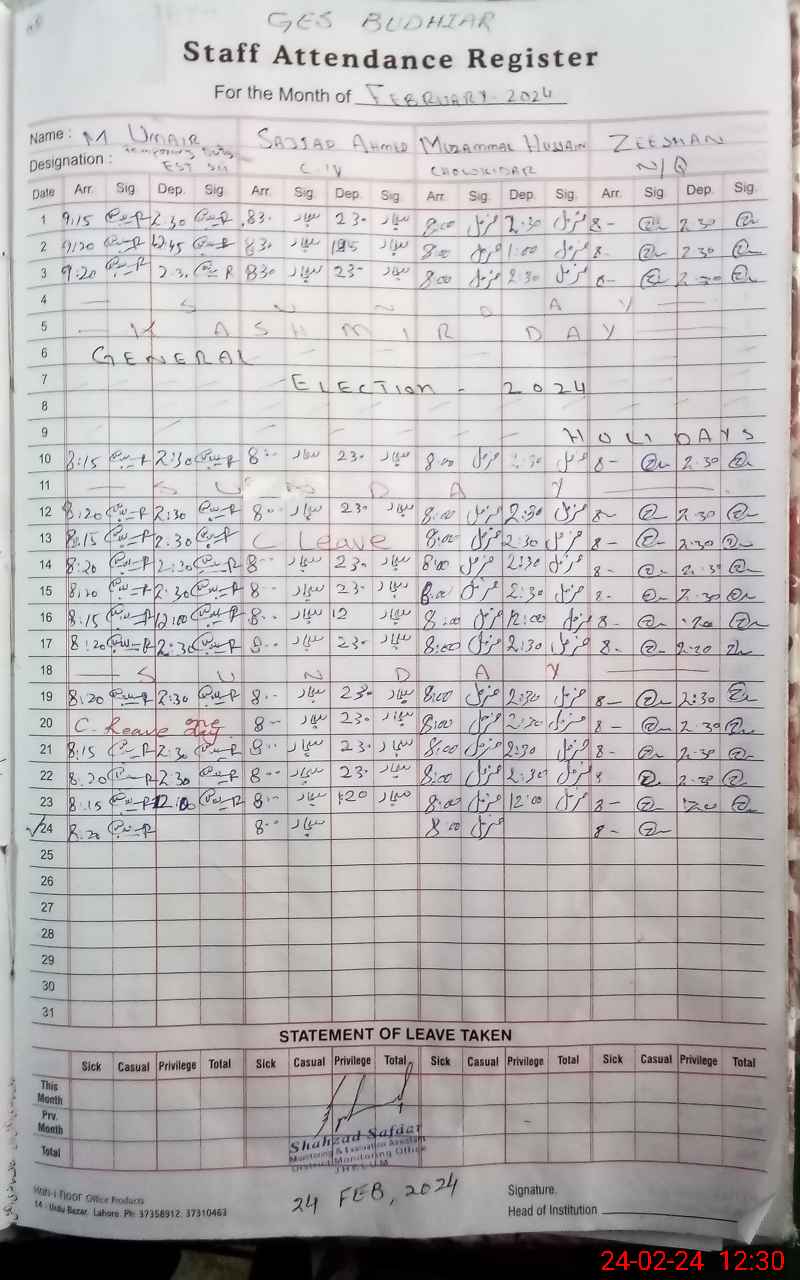 GES BUDHIAR
Staff Attendance Register
For the Month of FEBRUARY-2024
Name : M UMAIR SAJJAD AHMED MUZAMMAL HUSSAIN ZEESHAN
Designation : Temporary Duty EST C-IV CHOWKIDAR N/Q
Date Arr. Sig. Dep. Sig. Arr. Sig. Dep. Sig. Arr. Sig. Dep. Sig. Arr. Sig. Dep. Sig.
1 9:15 2:30 830 سجاد 230 سجاد 8:00 مزمل 2:30 مزمل 8- 2.30
2 9:20 12:45 830 سجاد سجاد 8:00 مزمل 1:00 مزمل 8- 2.30
3 9:20 2:3. 830 سجاد 230 سجاد 8:00 مزمل 2:30 مزمل 8- 2.30
4 — S U N D A Y
5 — K A S H M I R D A Y
6 GENERAL
7 ELECTION - 2024
8
9 HOLIDAYS
10 8:15 2:30 8.. سجاد 230 سجاد 8:00 مزمل 2:30 مزمل 8- 2.30
11 — S U N D A Y —
12 8:20 2:30 8.. سجاد 230 سجاد 8:00 مزمل 2:30 مزمل 8- 2.30
13 8:15 2:30 C Leave 8:00 مزمل 2:30 مزمل 8- 2.30
14 8:20 2:30 8.. سجاد 230 سجاد 8:00 مزمل 2:30 مزمل 8- 2.30
15 8:20 2:30 8.. سجاد 230 سجاد 8:00 مزمل 2:30 مزمل 8- 2.30
16 8:15 12:00 8.. سجاد 12 سجاد 8:00 مزمل 12:00 مزمل 8-
17 8:20 2:30 8.. سجاد 230 سجاد 8:00 مزمل 2:30 مزمل 8-
18 — S U N D A Y —
19 8:20 2:30 8.. سجاد 230 سجاد 8:00 مزمل 2:30 مزمل 8- 2:30
20 C. Leave one day 8.. سجاد 230 سجاد 8:00 مزمل 2:30 مزمل 8- 2.30
21 8:15 2:30 8.. سجاد 230 سجاد 8:00 مزمل 2:30 مزمل 8- 2.30
22 8.20 2:30 8.. سجاد 230 سجاد 8:00 مزمل 2:30 مزمل 2.30
23 8:15 8.. سجاد سجاد 8:00 مزمل 12:00 مزمل 8-
24 8:20 8.. سجاد 8:00 مزمل 8-
25
26
27
28
29
30
31
STATEMENT OF LEAVE TAKEN
Sick Casual Privilege Total Sick Casual Privilege Total Sick Casual Privilege Total Sick Casual Privilege Total
This Month
Prv. Month
Total
Shahzad Safdar
Monitoring & Evaluation Assistant
District Monitoring Office
JHELUM
24 FEB, 2024
Office Products
14 - Urdu Bazar, Lahore. Ph: 37358912, 37310463
Signature.
Head of Institution
24-02-24 12:30